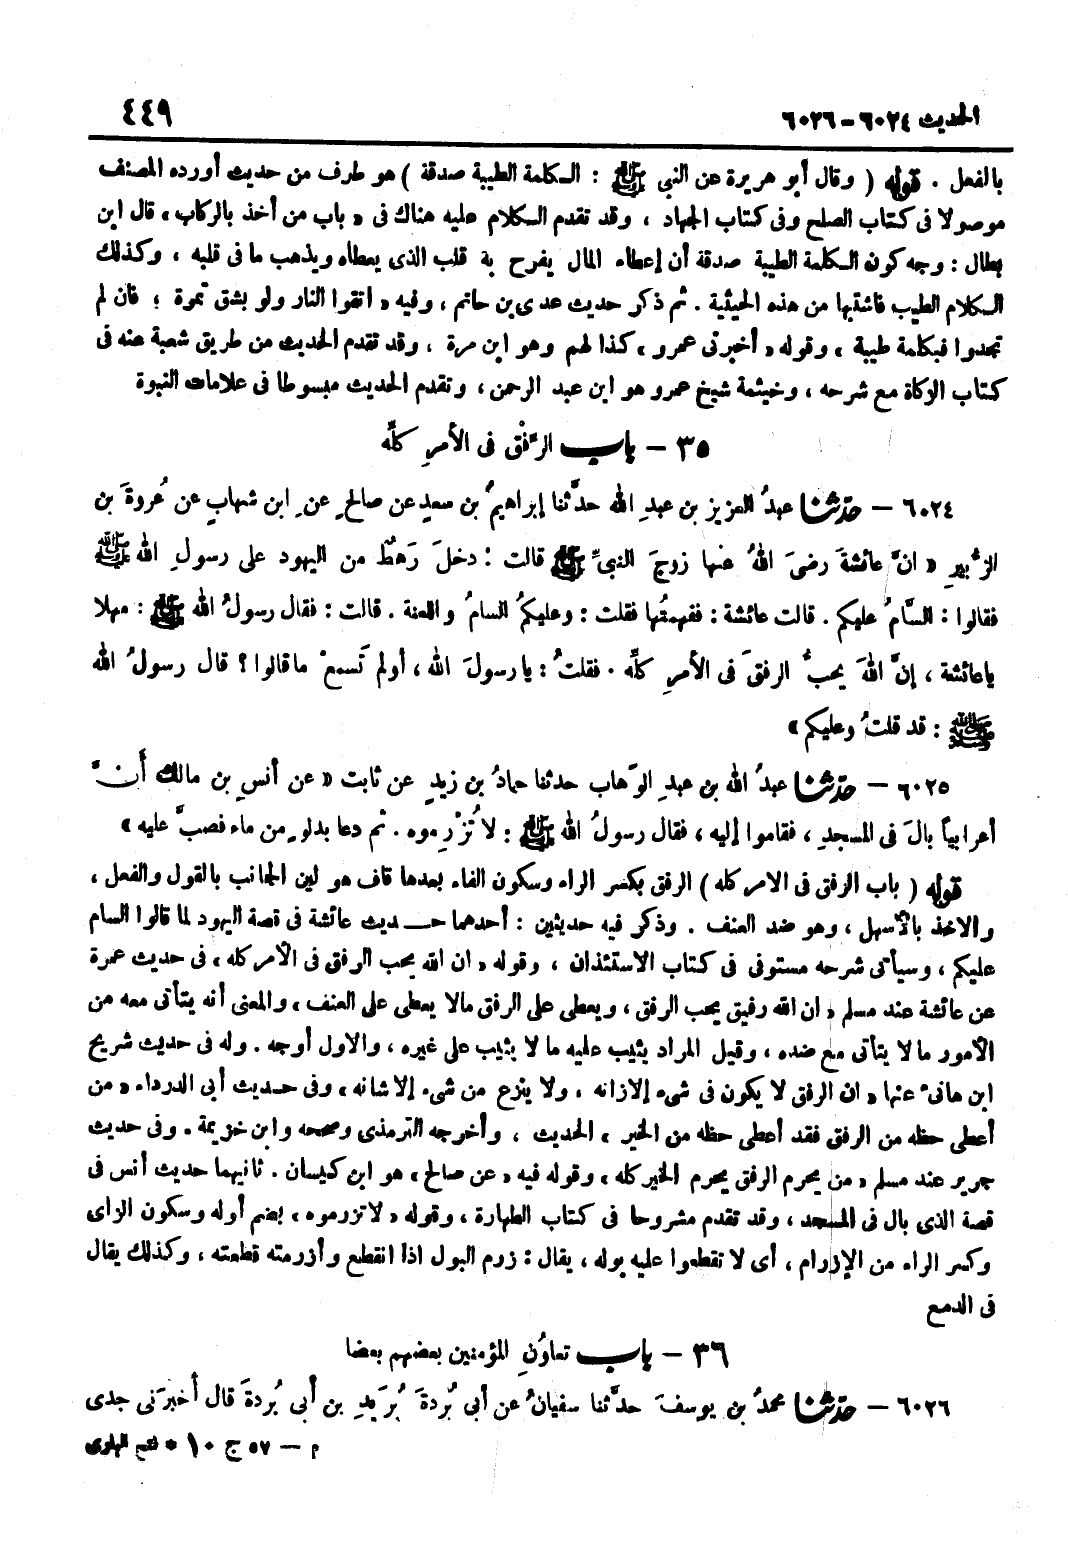 الحديث ٦٠٢٤ – ٦٠٢٦ ٤٤٩
بالفعل . قوله ( وقال أبو هريرة عن النبي ﷺ : الكلمة الطيبة صدقة ) هو طرف من حديث أورده المصنف
موصولا فى كتاب الصلح وفى كتاب الجهاد ، وقد تقدم الكلام عليه هناك فى « باب من أخذ بالركاب » قال ابن
بطال : وجه كون الكلمة الطيبة صدقة أن إعطاء المال يفرح به قلب الذى يعطاه ويذهب ما فى قلبه ، وكذلك
الكلام الطيب فاشتبها من هذه الحيثية . ثم ذكر حديث عدى بن حاتم ، وفيه « اتقوا النار ولو بشق تمرة ؛ فان لم
تجدوا فبكلمة طيبة » وقوله « أخبرنى عمرو » كذا لهم وهو ابن مرة ، وقد تقدم الحديث من طريق شعبة عنه فى
كتاب الزكاة مع شرحه ، وخيثمة شيخ عمرو هو ابن عبد الرحمن ، وتقدم الحديث مبسوطا فى علامات النبوة
٣٥ – باب الرِّفْق فى الأمرِ كلِّه
٦٠٢٤ – حدّثنا عبدُ العزيز بن عبدِ الله حدَّثنا إبراهيمُ بن سعدٍ عن صالحٍ عنِ ابن شهابٍ عن عُروةَ بن
الزُّبيرِ « انَّ عائشةَ رضىَ اللهُ عنها زوجَ النبىِّ ﷺ قالت : دخلَ رَهطٌ من اليهود على رسولِ الله ﷺ
فقالوا : السَّامُ عليكم . قالت عائشة : ففهمتُها فقلت : وعليكمُ السامُ واللعنة . قالت : فقال رسولُ الله ﷺ : مهلا
ياعائشة ، إنَّ اللهَ يحبُّ الرفقَ فى الأمرِ كلِّه . فقلتُ : يا رسولَ الله ، أولم تَسمعْ ما قالوا ؟ قال رسولُ الله
ﷺ : قد قلتُ وعليكم »
٦٠٢٥ – حدّثنا عبدُ الله بن عبدِ الوَهاب حدثنا حمادُ بن زيدٍ عن ثابت « عن أنسِ بن مالك أنَّ
أعرابياً بالَ فى المسجدِ ، فقاموا إليه ، فقال رسولُ الله ﷺ : لا تُزْرِموه . ثم دعا بدلوٍ من ماء فصبَّ عليه »
قوله ( باب الرفق فى الامر كله ) الرفق بكسر الراء وسكون الفاء بعدها قاف هو لين الجانب بالقول والفعل ،
والاخذ بالأسهل ، وهو ضد العنف . وذكر فيه حديثين : أحدهما حديث عائشة فى قصة اليهود لما قالوا السام
عليكم ، وسيأتى شرحه مستوفى فى كتاب الاستئذان ، وقوله « ان الله يحب الرفق فى الأمر كله » فى حديث عمرة
عن عائشة عند مسلم « ان الله رفيق يحب الرفق ، ويعطى على الرفق مالا يعطى على العنف » والمعنى أنه يتأتى معه من
الأمور ما لا يتأتى مع ضده ، وقيل المراد يثيب عليه ما لا يثيب على غيره ، والاول أوجه . وله فى حديث شريح
ابن هانئ عنها « ان الرفق لا يكون فى شىء إلا زانه ، ولا ينزع من شىء إلا شانه » وفى حديث أبى الدرداء « من
أعطى حظه من الرفق فقد أعطى حظه من الخير » الحديث ، وأخرجه الترمذى وصححه وابن خزيمة . وفى حديث
جرير عند مسلم « من يحرم الرفق يحرم الخير كله » وقوله فيه « عن صالح » هو ابن كيسان . ثانيهما حديث أنس فى
قصة الذى بال فى المسجد ، وقد تقدم مشروحا فى كتاب الطهارة ، وقوله « لا تزرموه » بضم أوله وسكون الزاى
وكسر الراء من الإزرام ، أى لا تقطعوا عليه بوله ، يقال : زرم البول اذا انقطع وأزرمته قطعته ، وكذلك يقال
فى الدمع
٣٦ – باب تعاوُنِ المؤمنين بعضهم بعضا
٦٠٢٦ – حدّثنا محمدُ بن يوسفَ حدَّثنا سفيانُ عن أبى بُردةَ بُرَيدِ بن أبى بُردةَ قال أخبرَنى جدى
م – ٥٧ ج ١٠ * فتح البارى